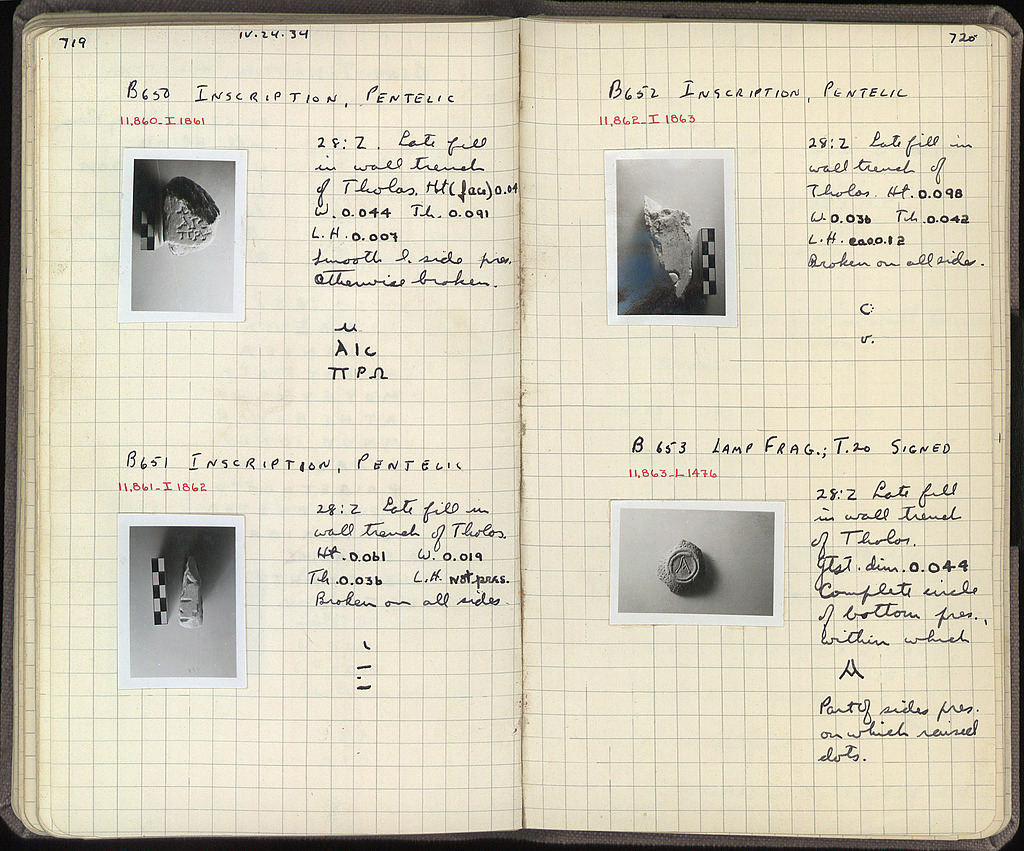 719
IV.24.34
B650 INSCRIPTION, PENTELIC
11,860-I 1861
28:Z. Late fill
in wall trench
of Tholos. Ht (face) 0.04
W. 0.044 Th. 0.091
L.H. 0.007
Smooth l. side pres.
Otherwise broken.
ΑΙC
ΠΡΩ
B651 INSCRIPTION, PENTELIC
11,861-I 1862
28:Z Late fill in
wall trench of Tholos.
Ht. 0.061 W. 0.019
Th. 0.036 L.H. not pres.
Broken on all sides.
720
B652 INSCRIPTION, PENTELIC
11,862-I 1863
28:Z Late fill in
wall trench of
Tholos. Ht. 0.098
W. 0.036 Th. 0.042
L.H. ca 0.12
Broken on all sides.
B 653 LAMP FRAG.; T.20 SIGNED
11,863-L 1476
28:Z Late fill
in wall trench
of Tholos.
Gtst. dim. 0.044
Complete circle
of bottom pres.,
within which
Part of sides pres.
on which raised
dots.